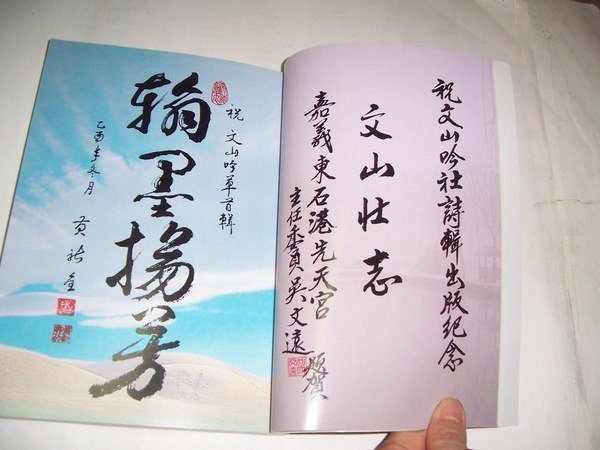 祝文山吟社詩輯出版紀念
文山壯志
嘉義東石港先天宮
主任委員吳文遠 題賀
祝 文山吟草首輯
翰墨揚芳
酉年冬月
黃